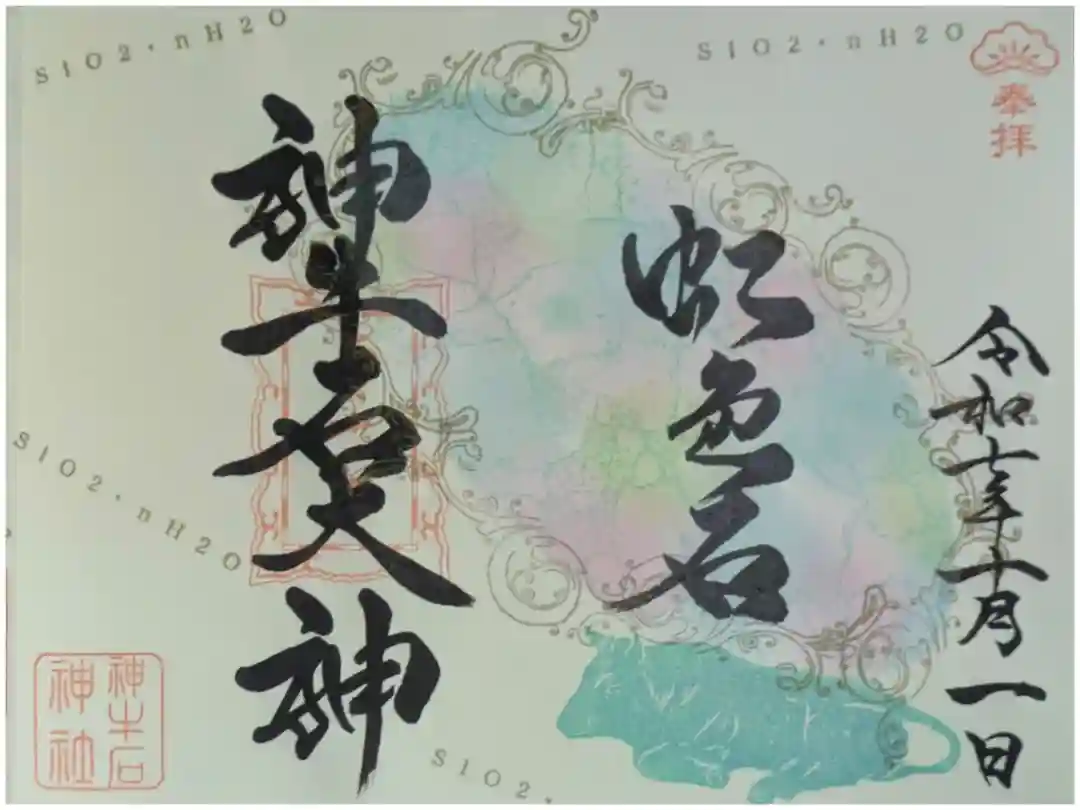 SIO2・nH2O
SIO2・nH2O
奉拝
令和七年十月一日
虹色石
神牛石大神
SIO2・nH2O
SIO2・
神牛石
神社